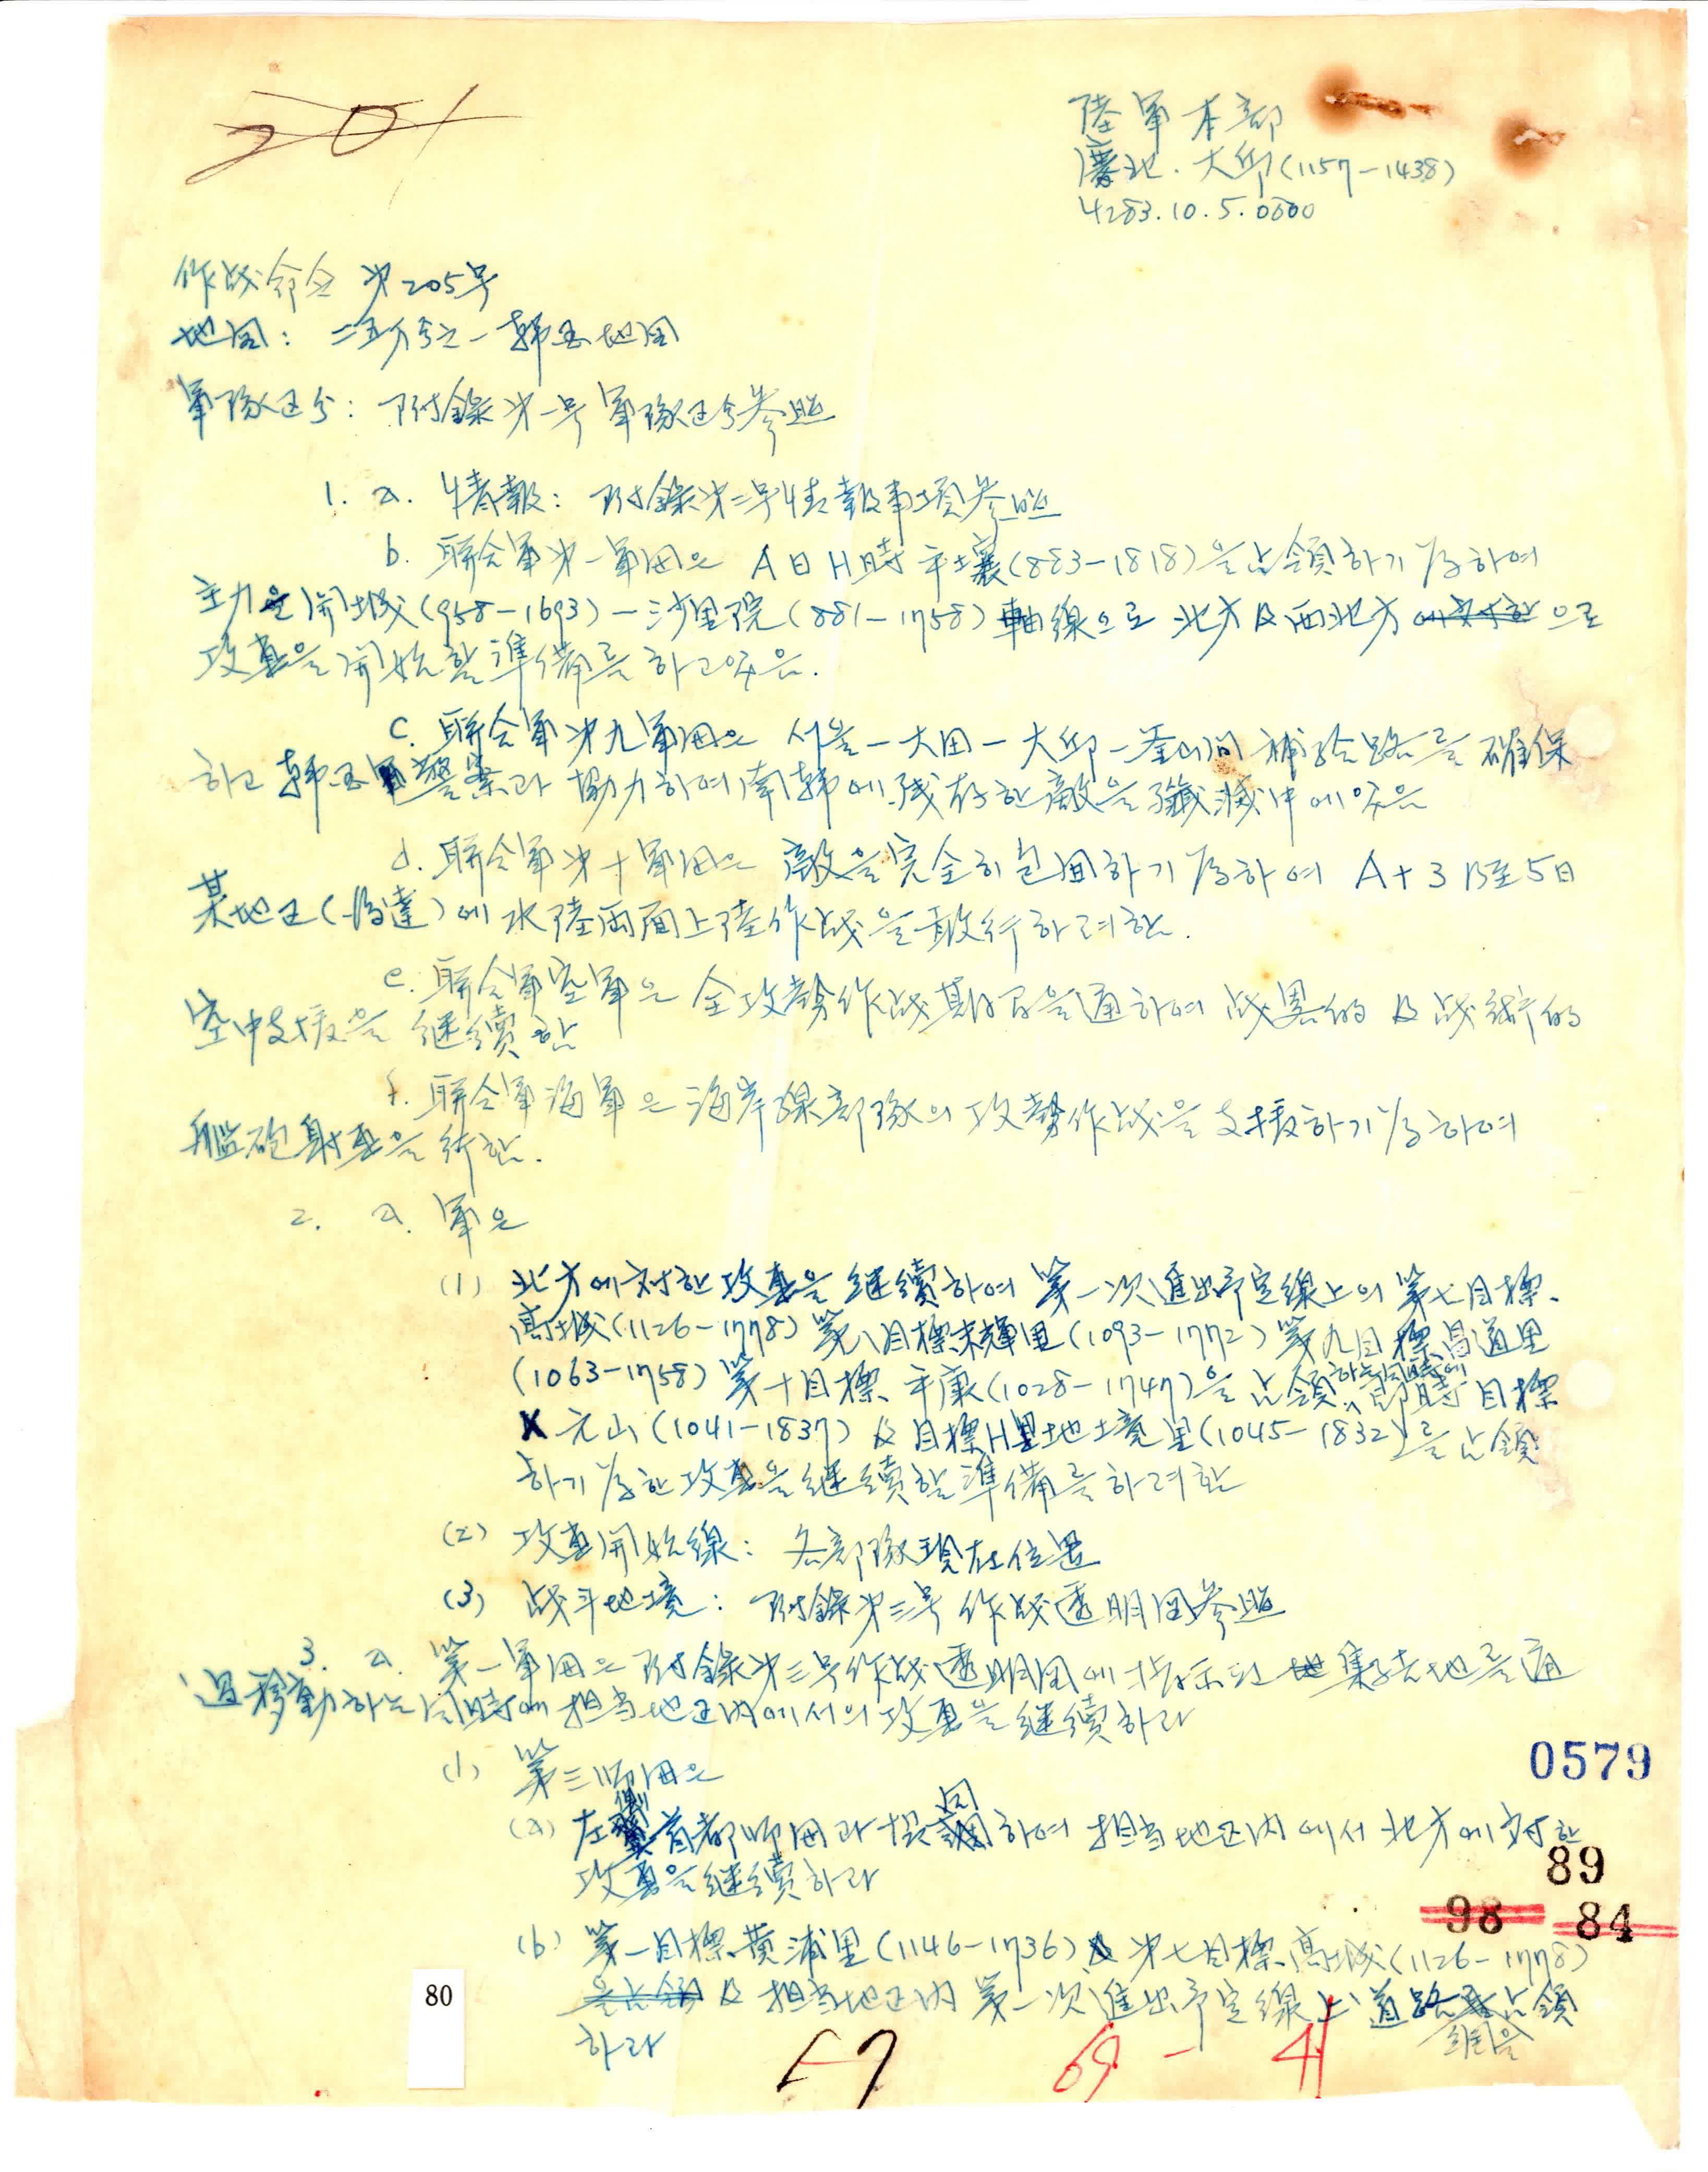 201
陸軍本部
慶北. 大邱(1157-1438)
4283.10.5.0600
作战命令 第205号
地図: 二五万分之一 韓国地図
軍隊区分: 附錄 第一号 軍隊区分 参照
1. a. 情報: 附錄 第二号 情報事項 参照
b. 聯合軍 第一軍団은 A日 H時 平壤(883-1818)을 占領하기 為하여
主力을 開城(958-1693)-沙里院(881-1758) 軸線으로 北方 及 西北方 으로
攻擊을 開始할 準備를 하고있음.
C. 聯合軍 第九軍団은 서울-大田-大邱-釜山间 補給路를 確保
하고 韓国 警察과 協力하여 南韓에 殘存한 敵을 殲滅中에 있음
d. 聯合軍 第十軍団은 敵을 完全히 包囲하기 為하여 A+3日至5日
某地区(後達)에 水陸両面上陸作战을 敢行하려함.
e. 聯合軍空軍은 全攻勢作战期间을 通하여 战畧的 及 战術的
空中支援을 継續함
f. 聯合軍海軍은 海岸線部隊의 攻勢作战을 支援하기 為하여
艦砲射擊을 行함.
2. a. 軍은
(1) 北方에 対한 攻擊을 継續하여 第一次進出予定線上의 第七目標
高城(1126-1778) 第八目標 末輝里(1093-1772) 第九目標 昌道里
(1063-1758) 第十目標 平康(1028-1747)을 占領하는同時에 即時 目標
X 元山(1041-1837) 及 目標H 地境里(1045-1832)를 占領
하기 為한 攻擊을 継續할 準備를 하려함
(2) 攻擊開始線: 各部隊現在位置
(3) 战斗地境: 附錄 第三号 作战透明図 参照
3. a. 第一軍団은 附錄 第三号 作战透明図에 指示된 集結地를 通
過移動하는 同時에 担当地区内에서의 攻擊을 継續하라
(1) 第三師団은
(a) 左側 首都師団과 協同하여 担当地区内에서 北方에 対한
攻擊을 継續하라
(b) 第一目標 黄浦里(1146-1736) 及 第七目標 高城(1126-1778)
及 担当地区内 第一次進出予定線上 道路 占領
하라
0579
89
98 84
80
69 - 41